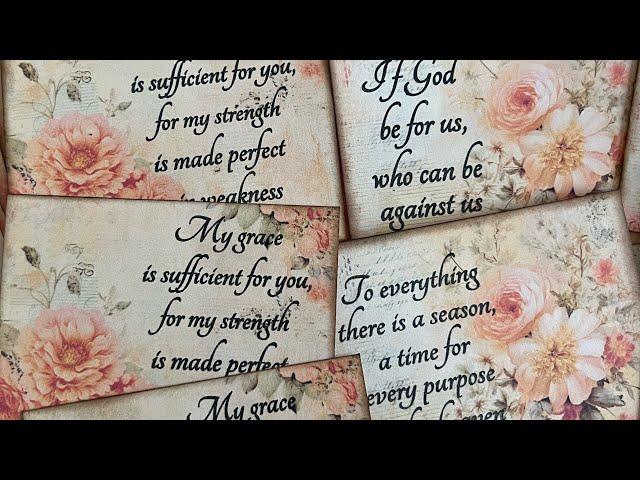 is sufficient for you,
for my strength
is made perfect
in weakness
If God
be for us,
who can be
against us
My grace
is sufficient for you,
for my strength
is made perfect
To everything
there is a season,
a time for
every purpose
heaven
My grace